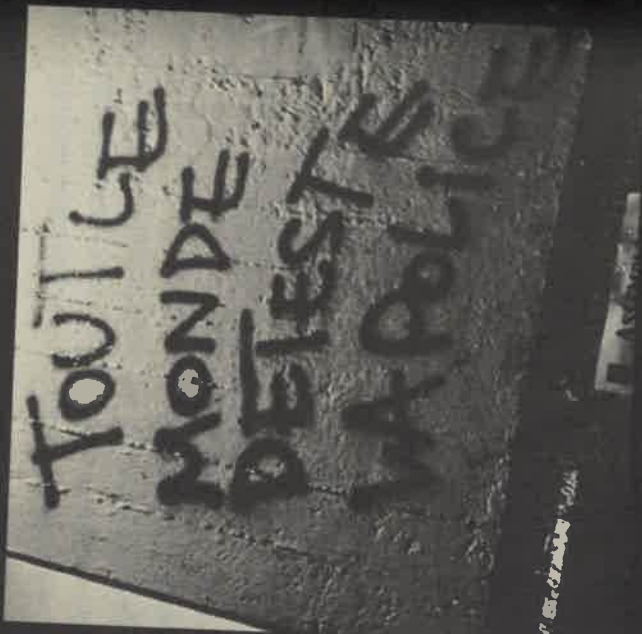 TOUT LE
MONDE
DÉTESTE
LA POLICE